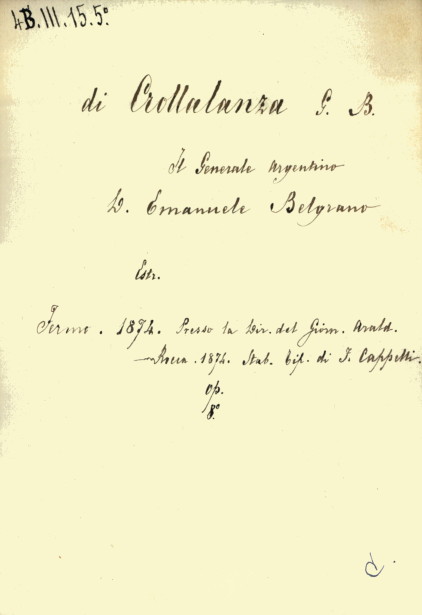 4B.III.15.5°
di Crollalanza G. B.
Il Generale Argentino
D. Emanuele Belgrano
Estr.
Fermo. 1874. Presso la Dir. del Giorn. Arald.
—Rocca. 1874. Stab. tip. di J. Cappelli.
op.
8°